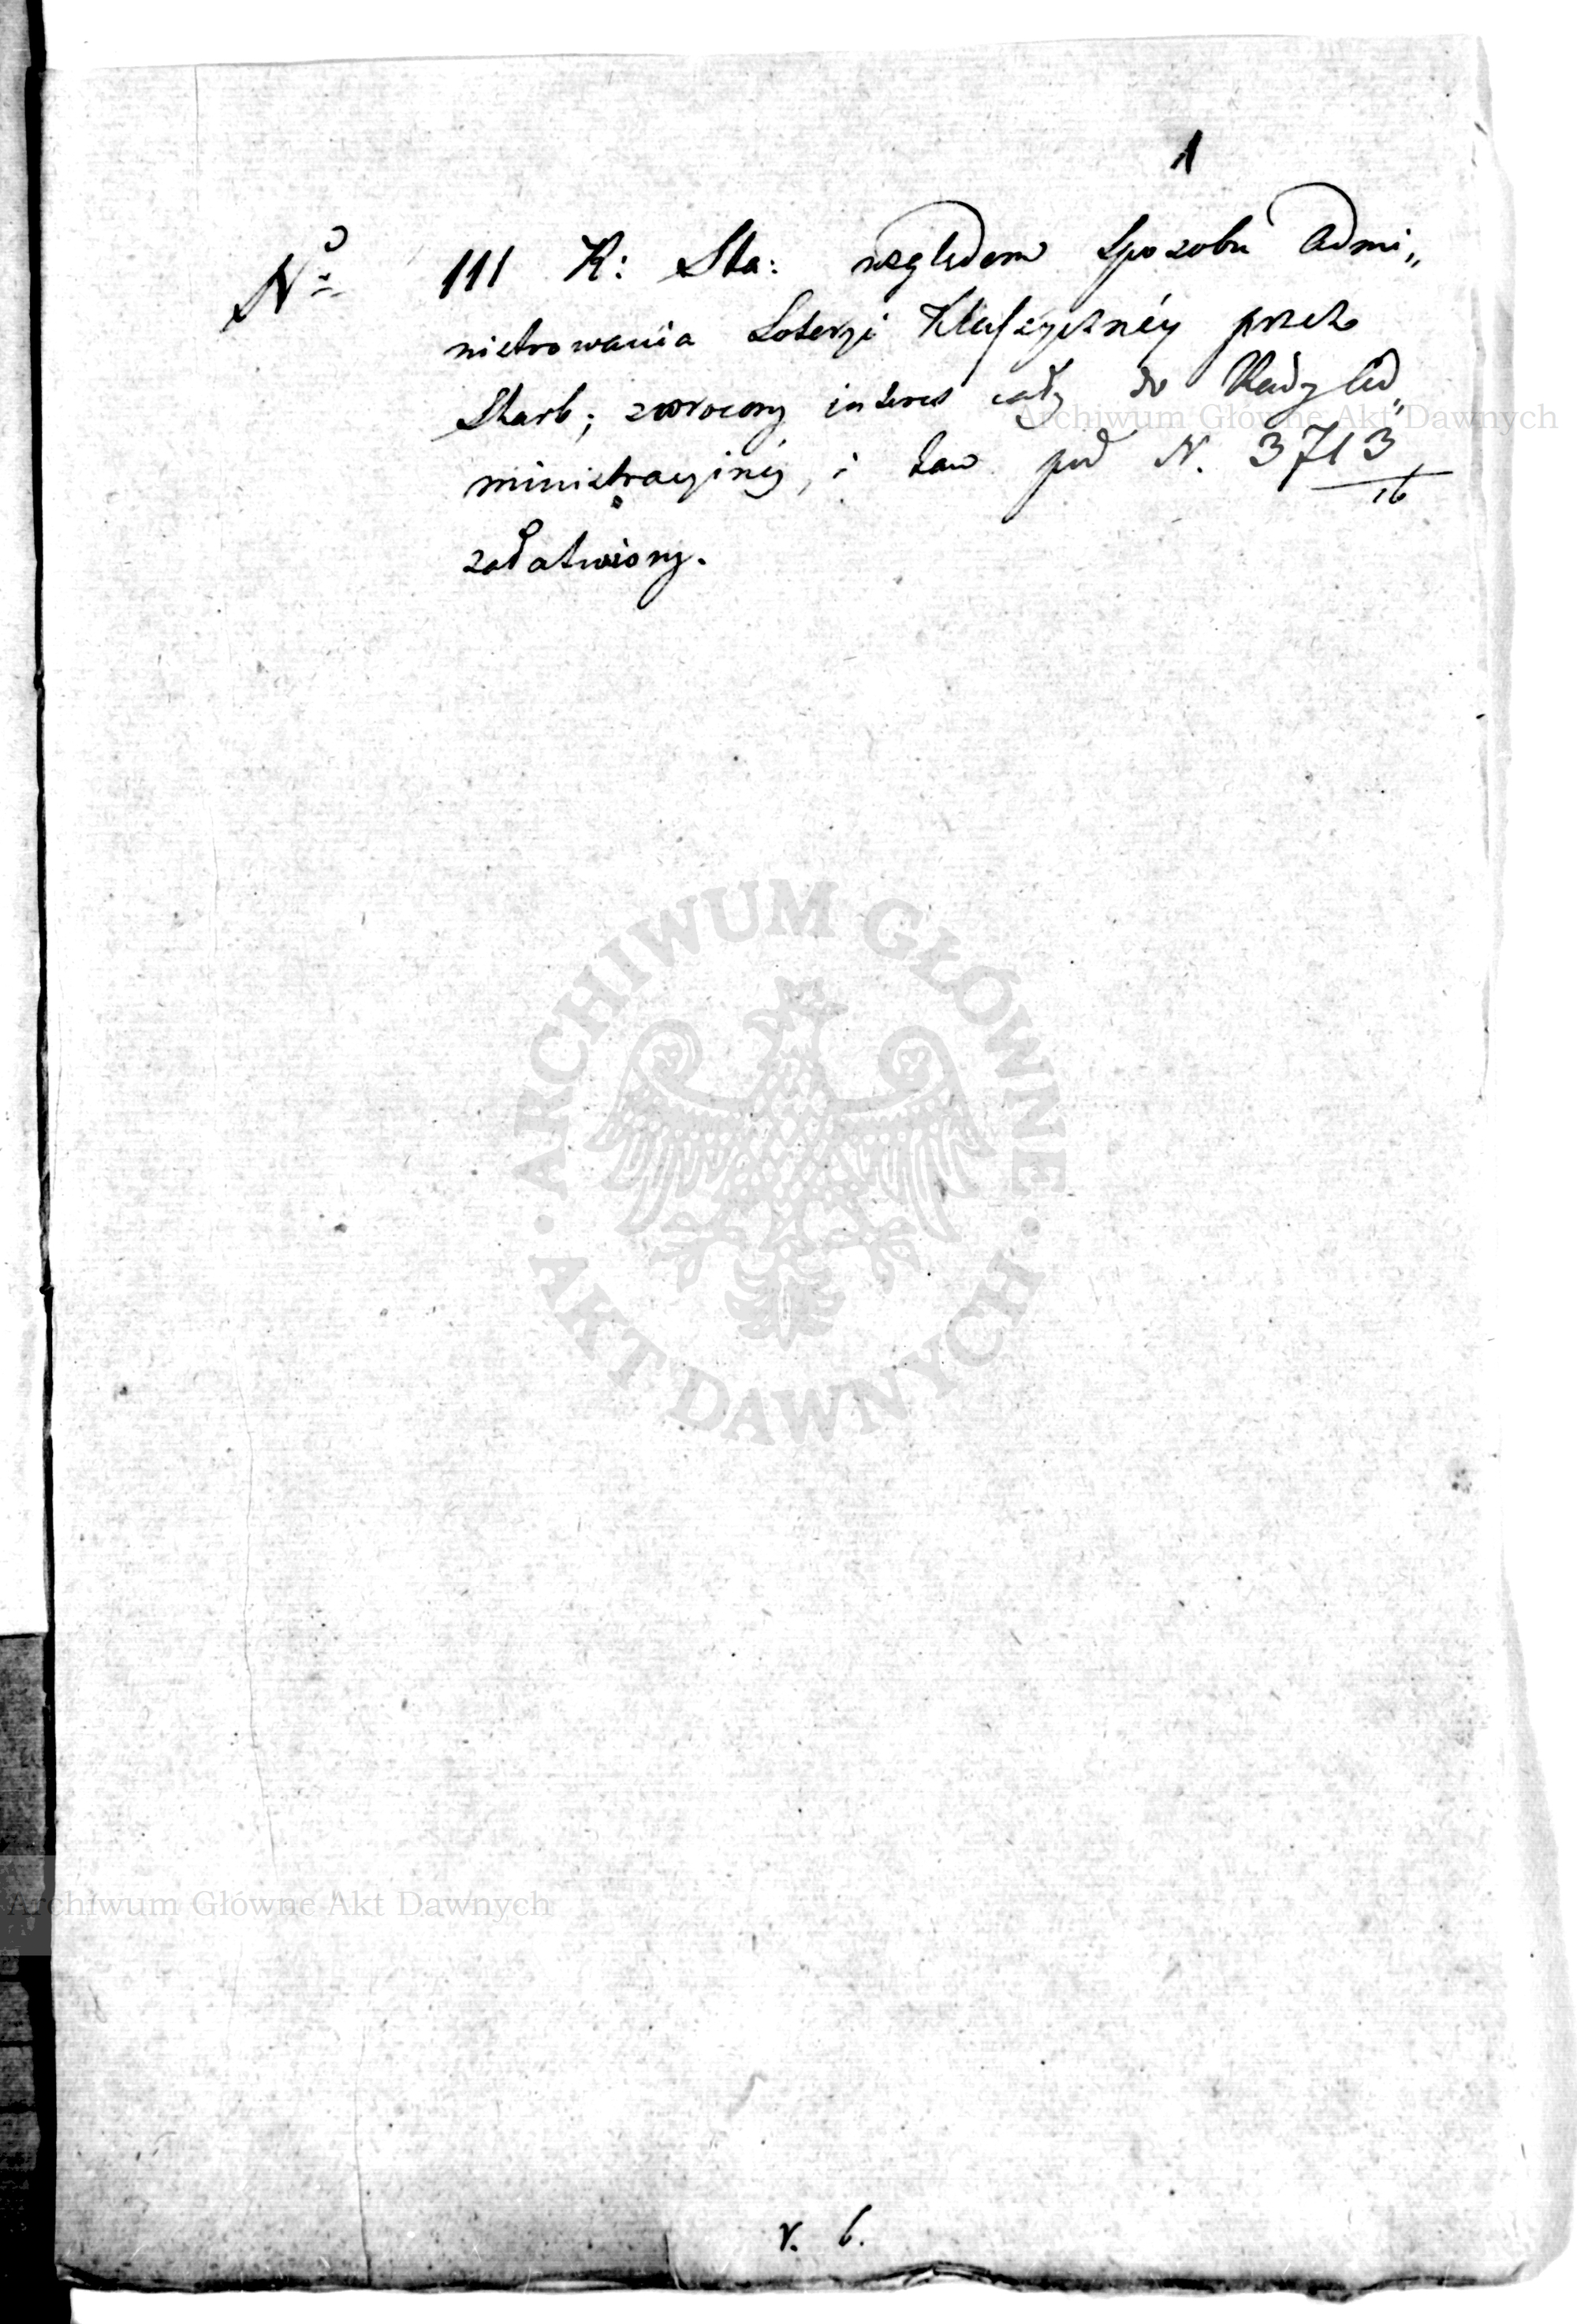 1
No 111 K: Sta: względem sposobu Admi„
nistrowania Loteryi Klassyczney przez
Skarb; zwrocony interes cały do Rady Ad„
ministracyiney, i tam pod N. 3713/16
załatwiony.
Archiwum Główne Akt Dawnych
ARCHIWUM GŁÓWNE
AKT DAWNYCH
Archiwum Główne Akt Dawnych
v. 6.